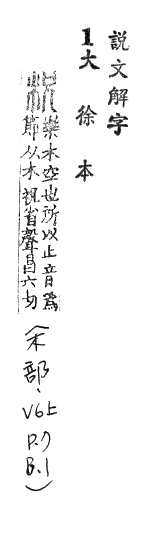 說文解字
1大徐本
柷樂木空也所以止音爲
節从木祝省聲昌六切
(木部、V6上P.7B.1)